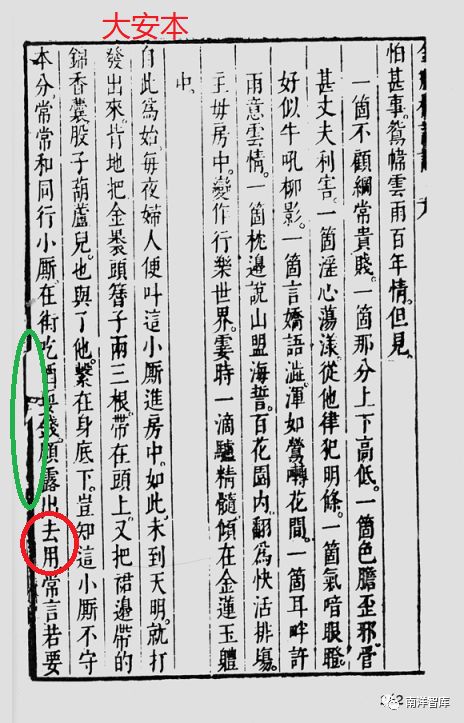 大安本
怕甚事。鴛幃雲雨百年情。但見、
一箇不顧綱常貴賤。一箇那分上下高低。一箇色膽歪邪。管
甚丈夫利害。一箇淫心蕩漾。從他律犯明條。一箇氣喑眼瞪。
好似牛吼柳影。一箇言嬌語澁。渾如鶯囀花間。一箇耳畔許
雨意雲情。一箇枕邊說山盟海誓。百花園内。翻爲快活排塲。
主毋房中。變作行樂世界。霎時一滴驢精髓。傾在金蓮玉體
中、
自此爲始。每夜婦人便叫這小厮進房中。如此。未到天明。就打
發出來。背地把金裹頭簪子兩三根。帶在頭上。又把裙邊帶的
錦香囊股子葫蘆兒。也與了他。繫在身底下。豈知這小厮不守
本分。常常和同行小厮。在街吃酒耍錢。頗露出去用常言若要
南洋智库